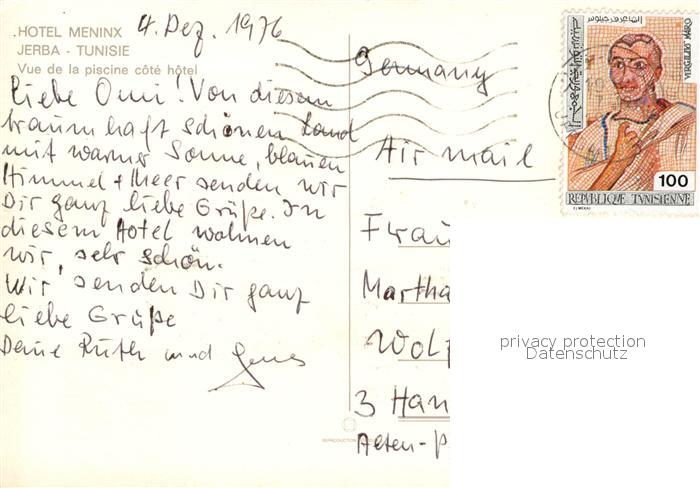 HOTEL MENINX
JERBA - TUNISIE
Vue de la piscine côté hôtel
4. Dez. 1976
Liebe Omi! Von diesem
traumhaft schönen Land
mit warmer Sonne, blauen
Himmel + Meer senden wir
Dir ganz liebe Grüße. In
diesem Hotel wohnen
wir, sehr schön.
Wir senden Dir ganz
liebe Grüße
Deine Ruth und
Germany
Air mail
Frau
Martha
Wolf
3 Han
Alten-
VERGILIUS MARO
100
REPUBLIQUE TUNISIENNE
privacy protection
Datenschutz